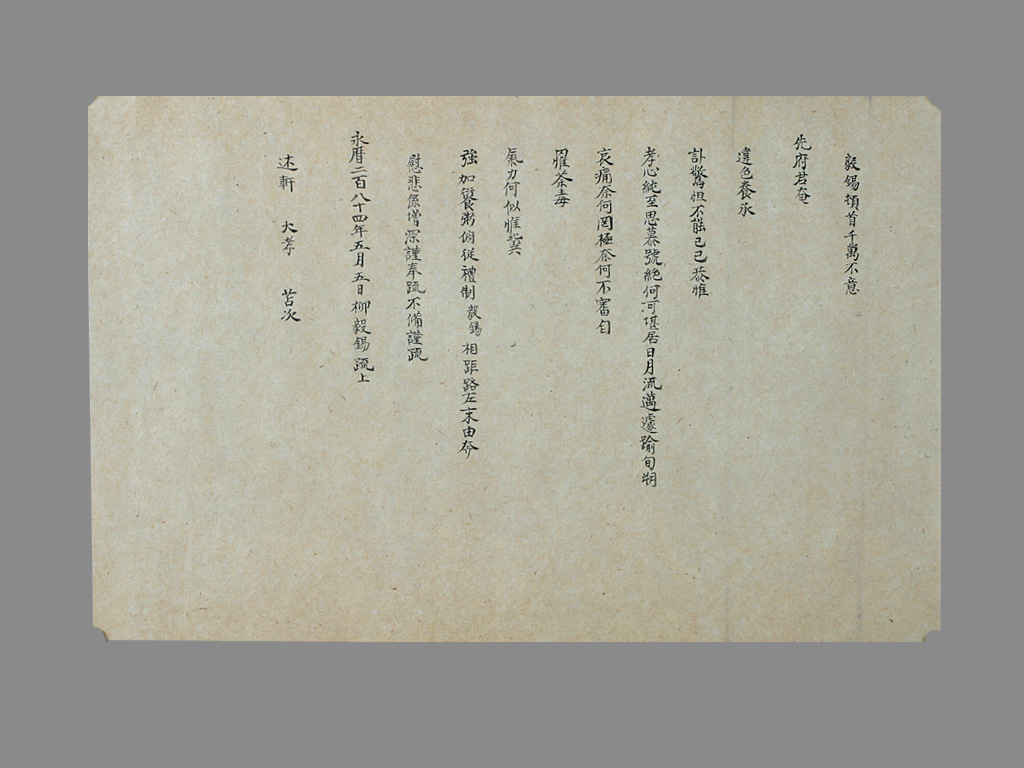 毅錫頓首千萬不意
先府君奄
違色養承
訃驚怛不能已已恭惟
孝心純至思慕號絶何可堪居日月流邁遽踰旬朔
哀痛奈何罔極奈何不審自
罹荼毒
氣力何似惟冀
強加餐粥俯從禮制毅錫相距路左末由奔
慰悲係增深謹奉疏不備謹疏
永曆二百八十四年五月五日柳毅錫疏上
述軒 大孝 苫次